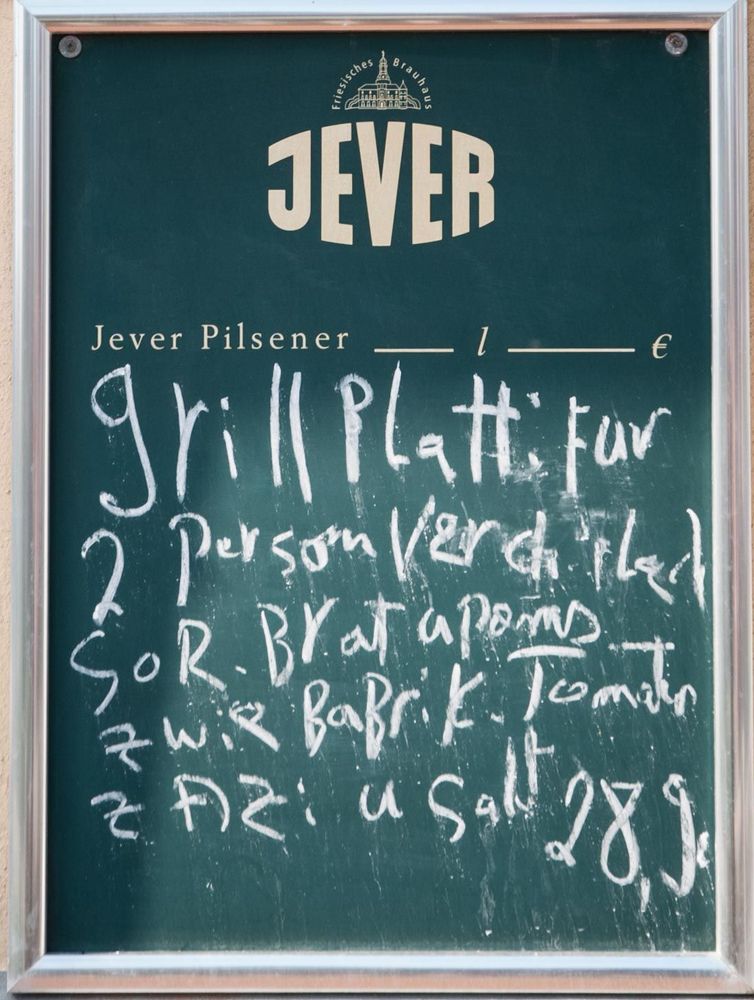 Friesisches Brauhaus
JEVER
Jever Pilsener ___ l ___ €
grill Platti fur
2 Person
SoR. Brat a poms
zwie Babrik. Tomatn
zAZi u Salt 28,9